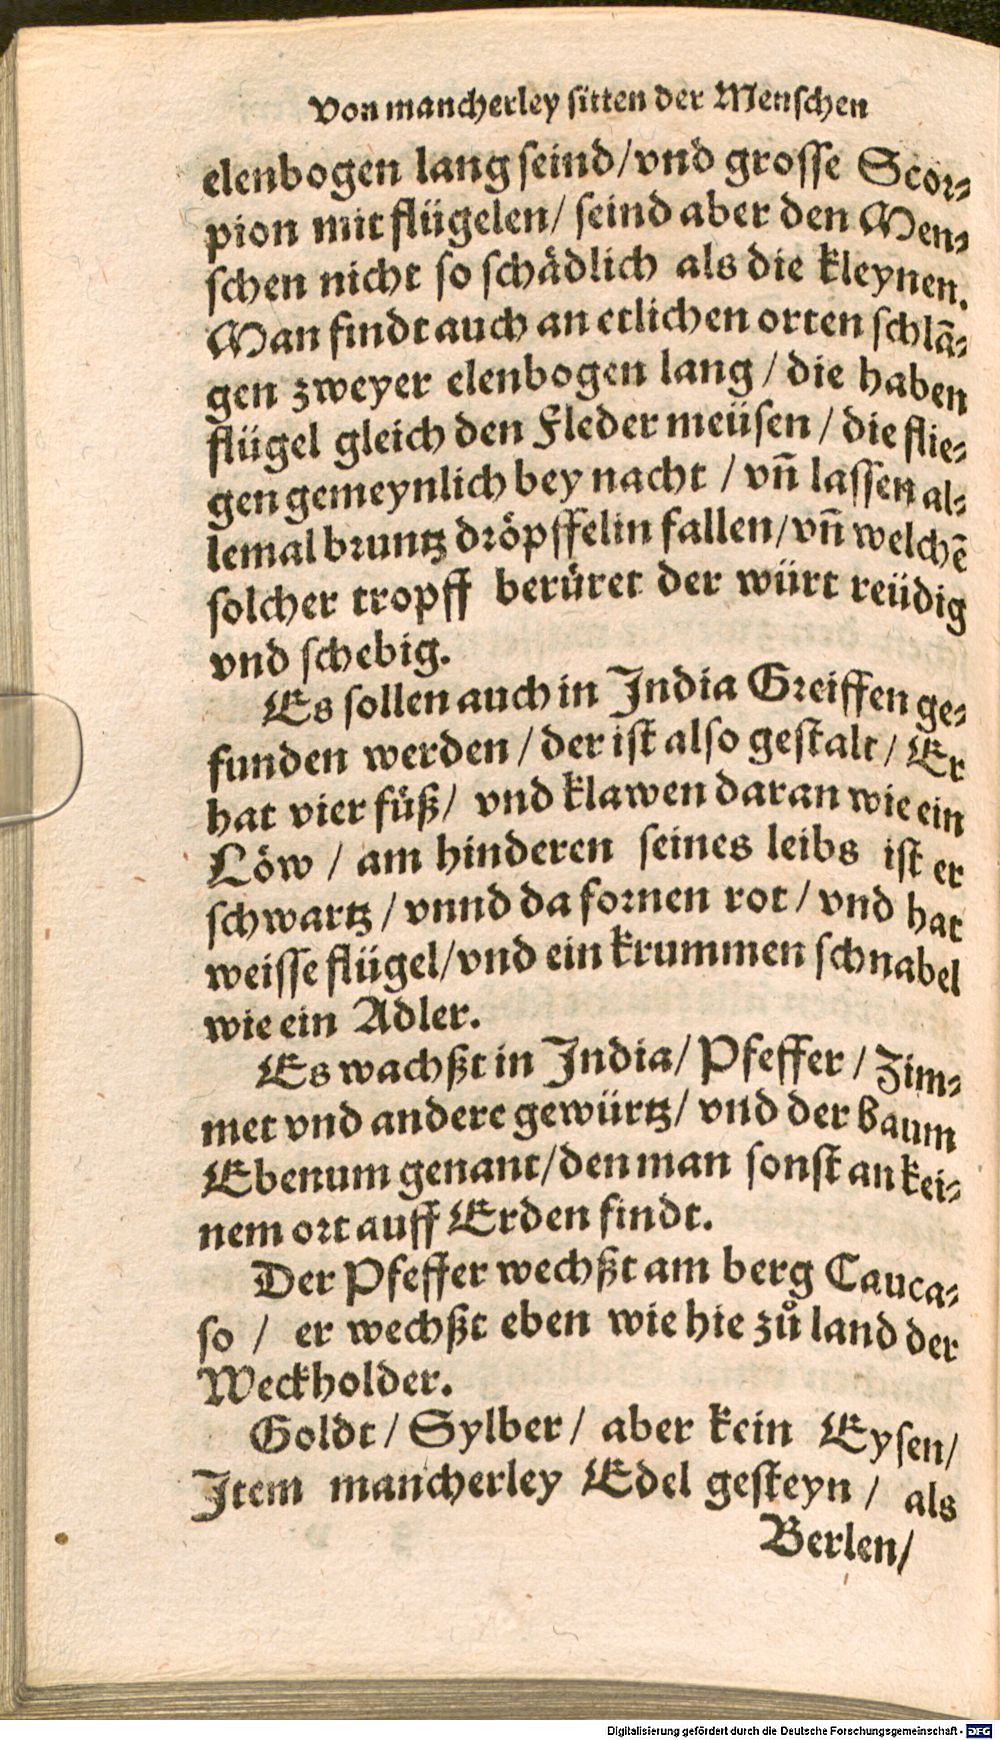 Von mancherley sitten der Menschen
elenbogen lang seind/vnd grosse Scor⸗
pion mit flügelen/ seind aber den Men⸗
schen nicht so schådlich als die kleynen.
Man findt auch an etlichen orten schlā⸗
gen zweyer elenbogen lang / die haben
flügel gleich den Fleder meüsen / die flie⸗
gen gemeynlich bey nacht / vn̄ lassen al⸗
lemal bruntz dröpffelin fallen/vn̄ welchē
solcher tropff berüret der würt reüdig
vnd schebig.
Es sollen auch in India Greiffen ge⸗
funden werden / der ist also gestalt / Er
hat vier füß/ vnd klawen daran wie ein
Löw / am hinderen seines leibs ist er
schwartz / vnnd da fornen rot / vnd hat
weisse flügel/vnd ein krummen schnabel
wie ein Adler.
Es wachßt in India/ Pfeffer / Zim⸗
met vnd andere gewürtz/ vnd der baum
Ebenum genant/den man sonst an kei⸗
nem ort auff Erden findt.
Der Pfeffer wechßt am berg Cauca⸗
so / er wechßt eben wie hie zů land der
Weckholder.
Goldt / Sylber / aber kein Eysen/
Item mancherley Edel gesteyn / als
Berlen/
Digitalisierung gefördert durch die Deutsche Forschungsgemeinschaft - DFG